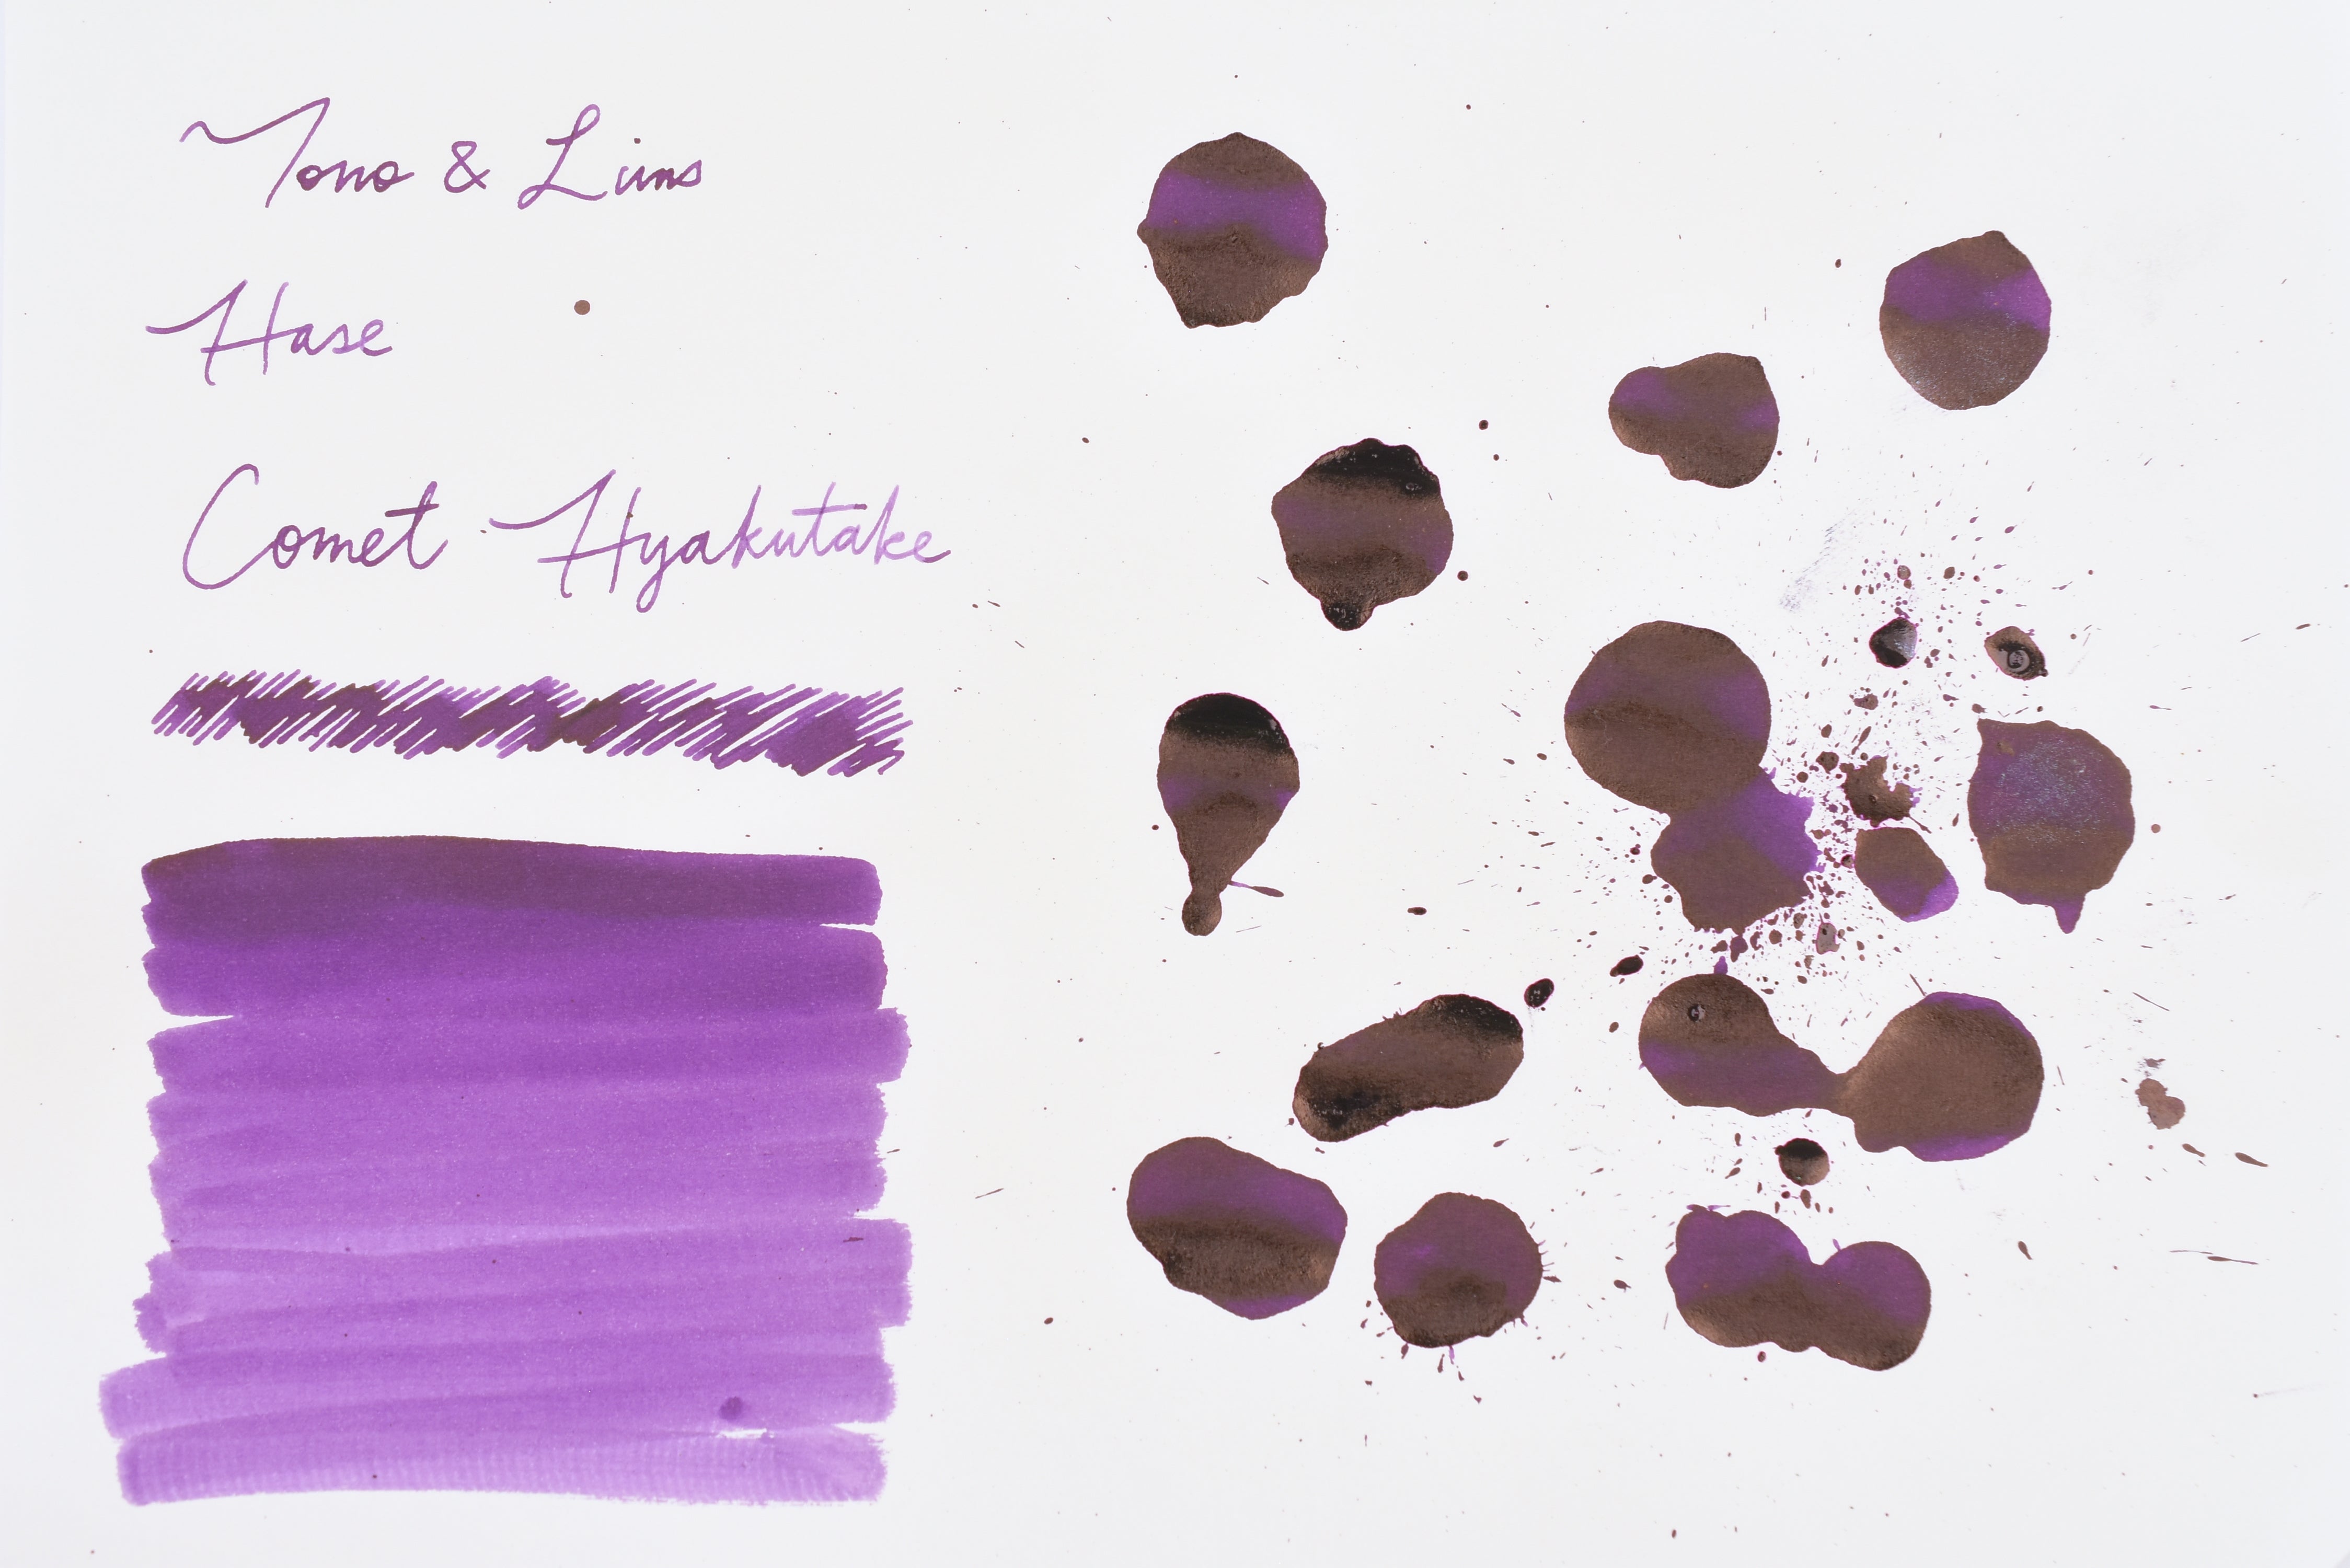 Tono & Lims
Hase
Comet Hyakutake